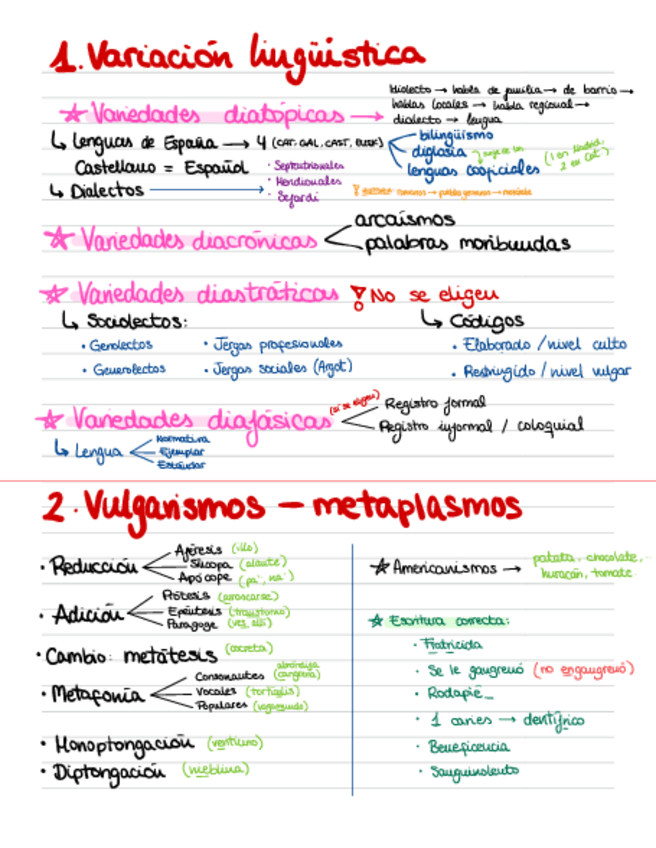 1. Variación lingüística
idiolecto → habla de familia → de barrio →
hablas locales → habla regional →
☆ Variedades diatópicas → dialecto → lengua
↳ Lenguas de España → 4 (CAT, GAL, CAST, EUSK) bilingüismo
diglosia
Castellano = Español lenguas cooficiales
↳ Dialectos → · Septentrionales
· Meridionales
· Sefardí
☆ Variedades diacrónicas arcaísmos
palabras moribundas
☆ Variedades diastráticas ! No se eligen
↳ Sociolectos: ↳ Códigos
· Genolectos · Jergas profesionales · Elaborado / nivel culto
· Geuerolectos · Jergas sociales (Argot) · Restringido / nivel vulgar
☆ Variedades diafásicas (sí se eligen) Registro formal
Registro informal / coloquial
↳ Lengua Normativa
Ejemplar
Estándar
2. Vulgarismos – metaplasmos
· Reducción Aféresis (illo)
Síncopa (alante)
Apócope (pa', na')
· Adición Prótesis (arrascarse)
Epéntesis
Paragoge
· Cambio: metátesis (cocreta)
· Metafonía Consonantes
Vocales
Populares
· Monoptongación (ventiuno)
· Diptongación (nieblina)
☆ Americanismos → patata, chocolate,
huracán, tomate
☆ Escritura correcta:
· Fratricida
· Se le gangrenó (no engangrenó)
· Rodapié_
· 1 caries → dentífrico
· Beneficencia
· Sanguinolento